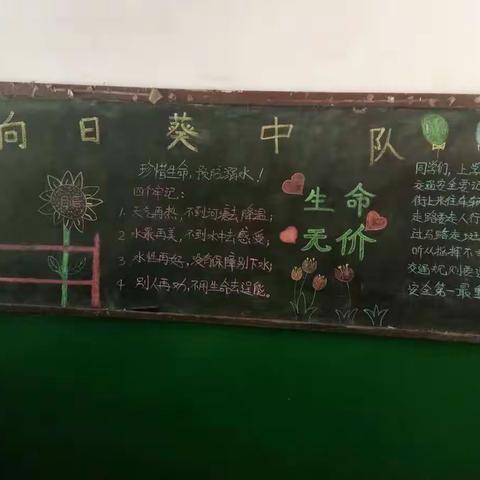 向日葵中队
珍惜生命，预防溺水！
四个牢记：
1. 天气再热，不到河塘去降温；
2 水景再美，不到水中去感受；
3 水性再好，没有保障别下水；
4 别人再劝，不用生命去逞能。
生命
无价
同学们，上学
交通安全要记
街上来往车辆
走路要走人行
过马路走斑
听从指挥不
交通规则要
安全第一最重